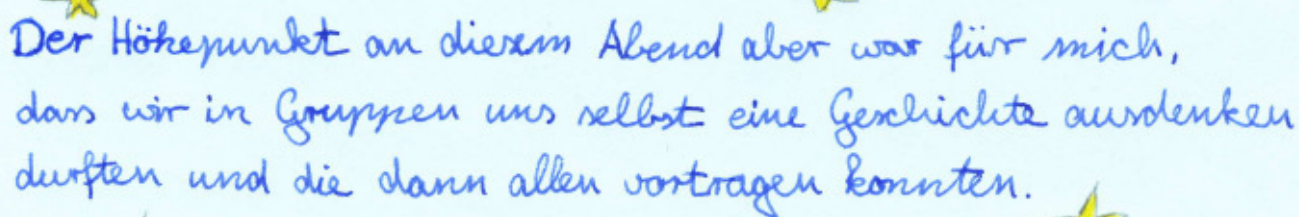 Der Höhepunkt an diesem Abend aber war für mich,
dass wir in Gruppen uns selbst eine Geschichte ausdenken
durften und die dann allen vortragen konnten.